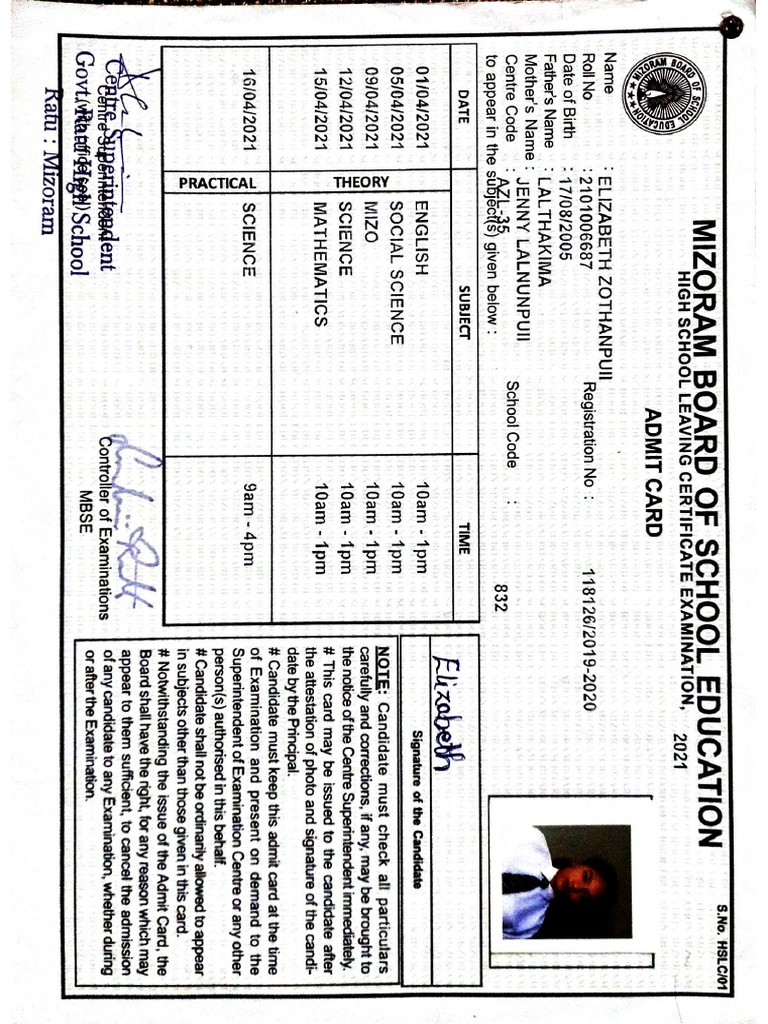 S.No. HSLC/01
MIZORAM BOARD OF SCHOOL EDUCATION
HIGH SCHOOL LEAVING CERTIFICATE EXAMINATION, 2021
ADMIT CARD
MIZORAM BOARD OF SCHOOL EDUCATION
Name : ELIZABETH ZOTHANPUII
Roll No : 2101006687 Registration No : 118126/2019-2020
Date of Birth : 17/08/2005
Father's Name : LALTHAKIMA
Mother's Name : JENNY LALNUNPUII
Centre Code : AZL-35 School Code : 832
to appear in the subject(s) given below :
DATE SUBJECT TIME
THEORY
01/04/2021 ENGLISH 10am - 1pm
05/04/2021 SOCIAL SCIENCE 10am - 1pm
09/04/2021 MIZO 10am - 1pm
12/04/2021 SCIENCE 10am - 1pm
15/04/2021 MATHEMATICS 10am - 1pm
PRACTICAL
16/04/2021 SCIENCE 9am - 4pm
Centre Superintendent
Centre Superintendent
(with office seal)
Govt. Ratu High School
Ratu : Mizoram
Controller of Examinations
MBSE
Elizabeth
Signature of the Candidate
NOTE: Candidate must check all particulars
carefully and corrections, if any, may be brought to
the notice of the Centre Superintendent immediately.
# This card may be issued to the candidate after
the attestation of photo and signature of the candi-
date by the Principal.
# Candidate must keep this admit card at the time
of Examination and present on demand to the
Superintendent of Examination Centre or any other
person(s) authorised in this behalf.
# Candidate shall not be ordinarily allowed to appear
in subjects other than those given in this card.
# Notwithstanding the issue of the Admit Card, the
Board shall have the right, for any reason which may
appear to them sufficient, to cancel the admission
of any candidate to any Examination, whether during
or after the Examination.